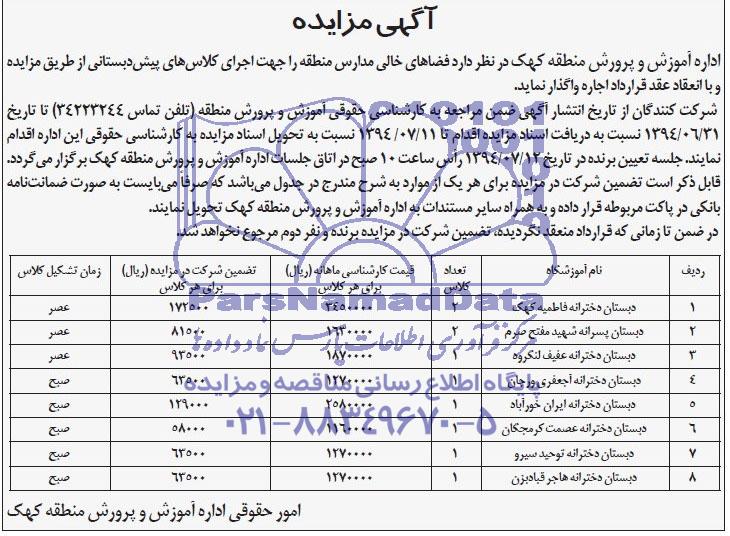 آگهی مزایده
اداره آموزش و پرورش منطقه کهک در نظر دارد فضاهای خالی مدارس منطقه را جهت اجرای کلاس‌های پیش‌دبستانی از طریق مزایده
و با انعقاد عقد قرارداد اجاره واگذار نماید.
شرکت کنندگان از تاریخ انتشار آگهی ضمن مراجعه به کارشناسی حقوقی آموزش و پرورش منطقه (تلفن تماس ۳۴۲۲۳۲۴۴) تا تاریخ
۱۳۹۴/۰۶/۳۱ نسبت به دریافت اسناد مزایده اقدام تا ۱۳۹۴/۰۷/۱۱ نسبت به تحویل اسناد مزایده به کارشناسی حقوقی این اداره اقدام
نمایند. جلسه تعیین برنده در تاریخ ۱۳۹۴/۰۷/۱۲ راس ساعت ۱۰ صبح در اتاق جلسات اداره آموزش و پرورش منطقه کهک برگزار می‌گردد.
قابل ذکر است تضمین شرکت در مزایده برای هر یک از موارد به شرح مندرج در جدول می‌باشد که صرفا می‌بایست به صورت ضمانت‌نامه
بانکی در پاکت مربوطه قرار داده و به همراه سایر مستندات به اداره آموزش و پرورش منطقه کهک تحویل نمایند.
در ضمن تا زمانی که قرارداد منعقد نگردیده، تضمین شرکت در مزایده برنده و نفر دوم مرجوع نخواهد شد.
ردیف نام آموزشگاه تعداد کلاس قیمت کارشناسی ماهانه (ریال) برای هر کلاس تضمین شرکت در مزایده (ریال) برای هر کلاس زمان تشکیل کلاس
۱ دبستان دخترانه فاطمیه کهک ۲ ۳۴۵۰۰۰۰ ۱۷۲۵۰۰ عصر
۲ دبستان پسرانه شهید مفتح صرم ۲ ۱۶۳۰۰۰۰ ۸۱۵۰۰ عصر
۳ دبستان دخترانه عفیف لنگرود ۱ ۱۸۷۰۰۰۰ ۹۳۵۰۰ عصر
۴ دبستان دخترانه آجعفری ورجان ۱ ۱۲۷۰۰۰۰ ۶۳۵۰۰ صبح
۵ دبستان دخترانه ایران خورآباد ۱ ۲۵۸۰۰۰۰ ۱۲۹۰۰۰ صبح
۶ دبستان دخترانه عصمت کرمجگان ۱ ۱۱۶۰۰۰۰ ۵۸۰۰۰ صبح
۷ دبستان دخترانه توحید سیرو ۱ ۱۲۷۰۰۰۰ ۶۳۵۰۰ صبح
۸ دبستان دخترانه هاجر قبادبزن ۱ ۱۲۷۰۰۰۰ ۶۳۵۰۰ صبح
امور حقوقی اداره آموزش و پرورش منطقه کهک
ParsNamadData
مرکز فرآوری اطلاعات پارس نماد داده‌ها
پایگاه اطلاع رسانی مناقصه و مزایده
۰۲۱-۸۸۳۴۹۶۷۰-۵